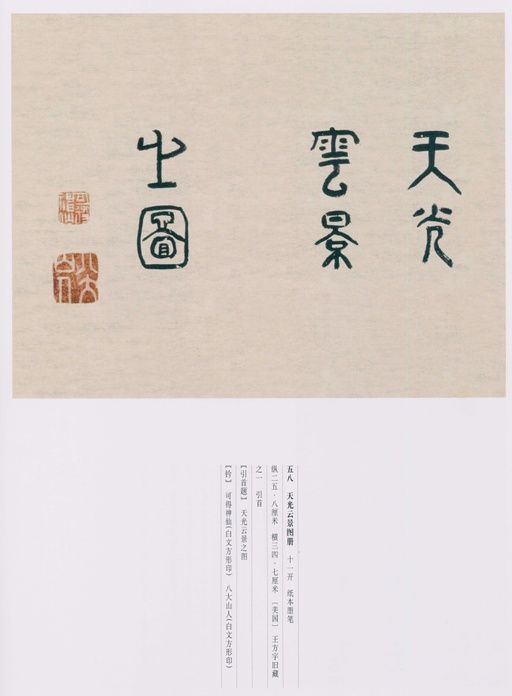 天光
雲景
之圖
五八 天光云景图册 十一开 纸本墨笔
纵二五·八厘米 横三四·七厘米 (美国) 王方宇旧藏
之一 引首
【引首题】 天光云景之图
【钤】 可得神仙(白文方形印) 八大山人(白文方形印)